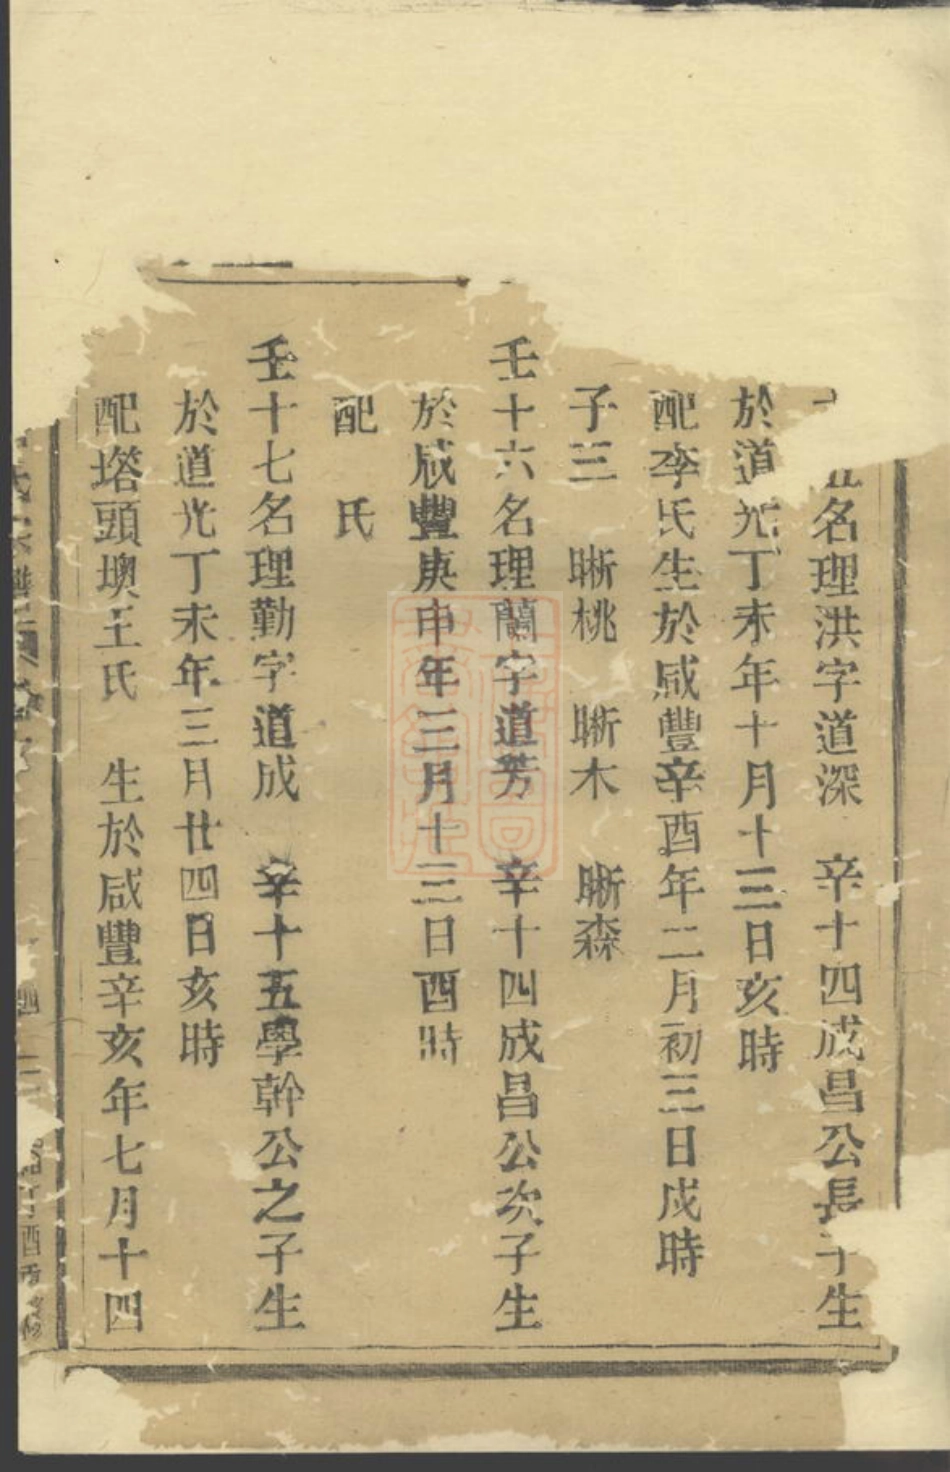 五名理洪字道深　辛十四成昌公長子生
於道光丁未年十月十三日亥時
配李氏生於咸豐辛酉年二月初三日戌時
子三　晰桃　晰木　晰森
壬十六名理蘭字道芳　辛十四成昌公次子生
於咸豐庚申年三月十三日酉時
配　氏
壬十七名理勤字道成　辛十五學幹公之子生
於道光丁未年三月廿四日亥時
配塔頭墺王氏　生於咸豐辛亥年七月十四